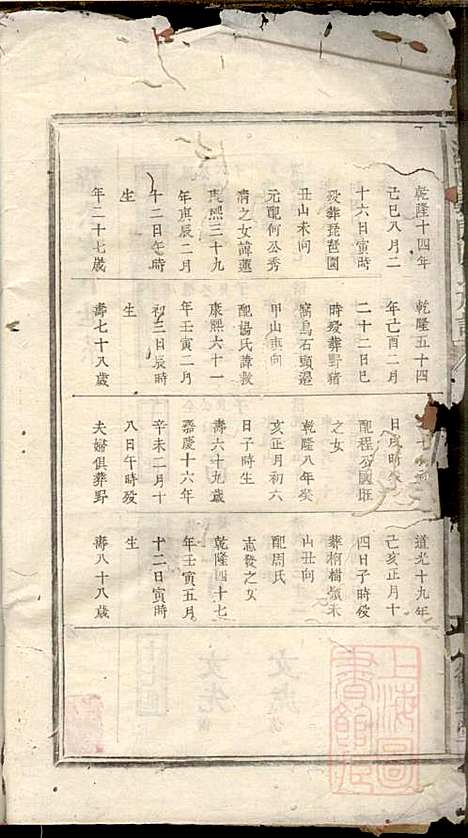 乾隆十四年
己巳八月二
十六日寅時
歿葬琵琶園
丑山未向
元配何公秀
清之女諱蓮
康熙三十九
年庚辰二月
十二日午時
生
年二十七歲
乾隆五十四
年己酉二月
二十二日巳
時歿葬野豬
窩烏石頭邊
甲山庚向
配楊氏諱救
康熙六十一
年壬寅二月
初三日辰時
生
壽七十八歲
日戌時
配程公國班
之女
乾隆八年癸
亥正月初六
日子時生
壽六十九歲
嘉慶十六年
辛未二月十
八日午時歿
夫婦俱葬野
道光十九年
己亥正月十
四日子時歿
葬桐檑嶺未
山丑向
配周氏
志發之女
乾隆四十七
年壬寅五月
十二日寅時
生
壽八十八歲
上海圖
書館藏